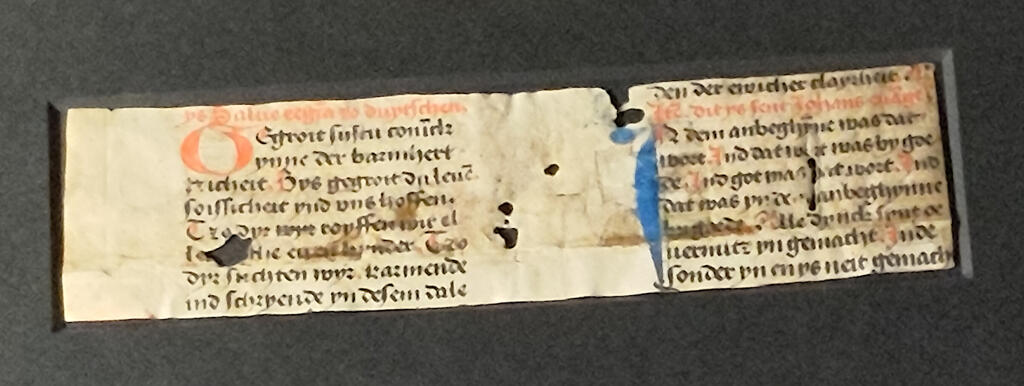 ys Salue regina zo duytschen
O Egroit systu conick
ynne der barmhert
zicheit Bys gegroit du leue
soissicheit ynd vns hoffen
Tzo dyr wyr royffen wir el
die kynder Tzo
dyr suchten wyr karmende
ind schryende yn desem dale
den der ewicher clayrheit
dit ys sent Johans euange
dem anbeghynne was dat
wort Ind dat wort was by gode
Ind got was dat wort Ind
dat was yn de anbeghynne
Alle dynck synt
vermitz yn gemacht Inde
sonder yn en ys neit gemach